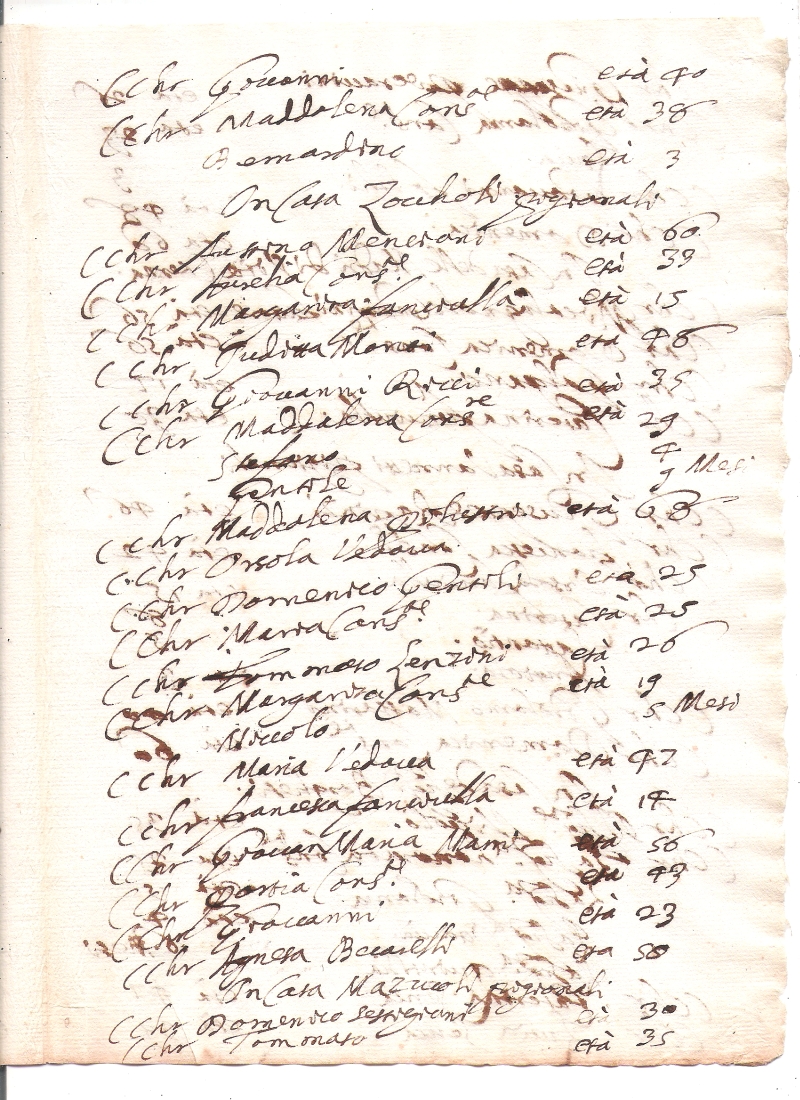 C chr Giovanni età 40
C chr Maddalena Cons.te età 38
Bernardino età 3
In Casa Zocholi pigionali
C chr Mencioni età 60
C chr Aurelia Cons.te età 33
C chr Margarita fanciulla età 15
C chr Juditta Monti età 48
C chr Giovanni Ricci età 35
C chr Maddalena Cons.re età 29
Stefano 4
Gentile 9 Mesi
C chr Maddalena età 68
C chr Orsola Vedova
C chr Domenico Gentili eta 25
C chr Maria Cons.te età 25
C chr Tommaso Lenzini età 26
C chr Margarita Cons.te età 19
Niccolo 5 Mesi
C chr Maria Vedova età 47
C chr francesca fanciulla età 14
C chr Giovan Maria Mami età 56
C chr Portia Cons.te età 43
C chr Giovanni età 23
C chr Agnesa Becarelli eta 50
In Casa Mazzuoli pigionali
C chr Domenico Sestigiani età 30
C chr Tommaso età 35